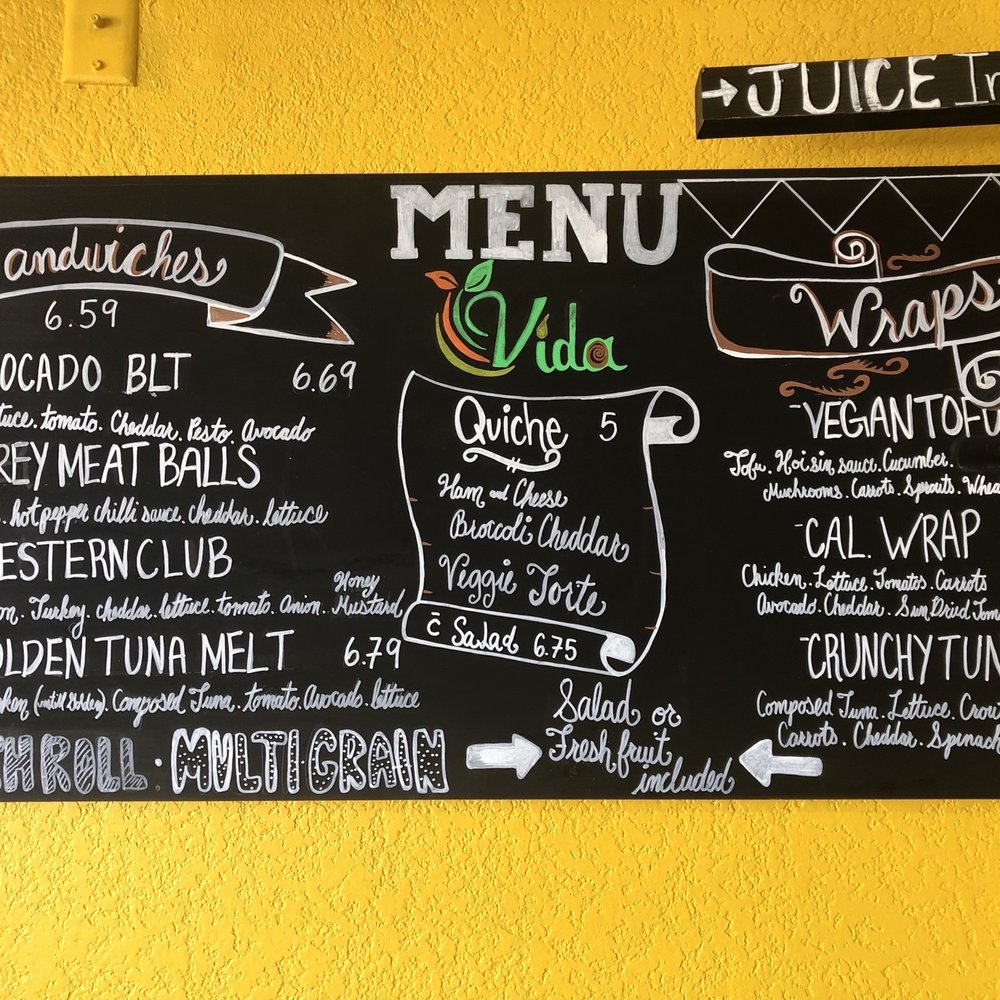 JUICE In
MENU
Vida
andwiches
6.59
OCADO BLT 6.69
tuce. tomato. Cheddar. Pesto. Avocado
REY MEAT BALLS
. hot pepper chilli sauce. cheddar. lettuce
ESTERN CLUB
on. Turkey. cheddar. lettuce. tomato. Onion. Honey Mustard
OLDEN TUNA MELT 6.79
Composed Tuna. tomato. Avocado. lettuce
H ROLL · MULTIGRAIN
Quiche 5
Ham and Cheese
Broccoli Cheddar
Veggie Torte
c̄ Salad 6.75
Salad or
Fresh fruit
included
Wraps
-VEGAN TOFU
Tofu. Hoisin sauce. Cucumber.
Muchrooms. Carrots. Sprouts. Whea
-CAL. WRAP
Chicken. Lettuce. Tomatos. Carrots
Avocado. Cheddar. Sun Dried Tom
-CRUNCHY TUN
Composed Tuna. Lettuce. Crou
Carrots. Cheddar. Spinach